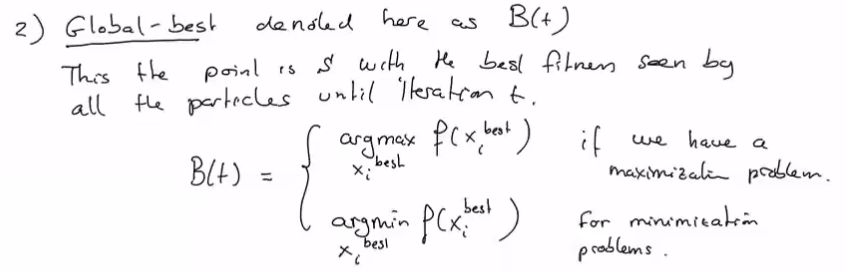 2) Global-best denoted here as B(t)
This the point is S with the best fitness seen by
all the particles until iteration t.
B(t) = { argmax f(x_i^best) if we have a
x_i^best maximization problem.
argmin f(x_i^best) for minimization
x_i^best problems.